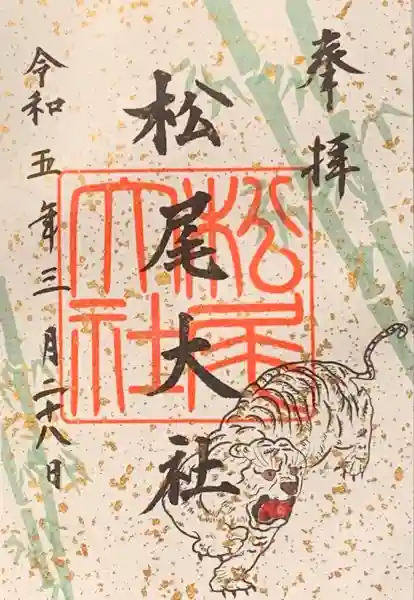 奉拝
松尾大社
松尾大社
令和五年三月二十八日